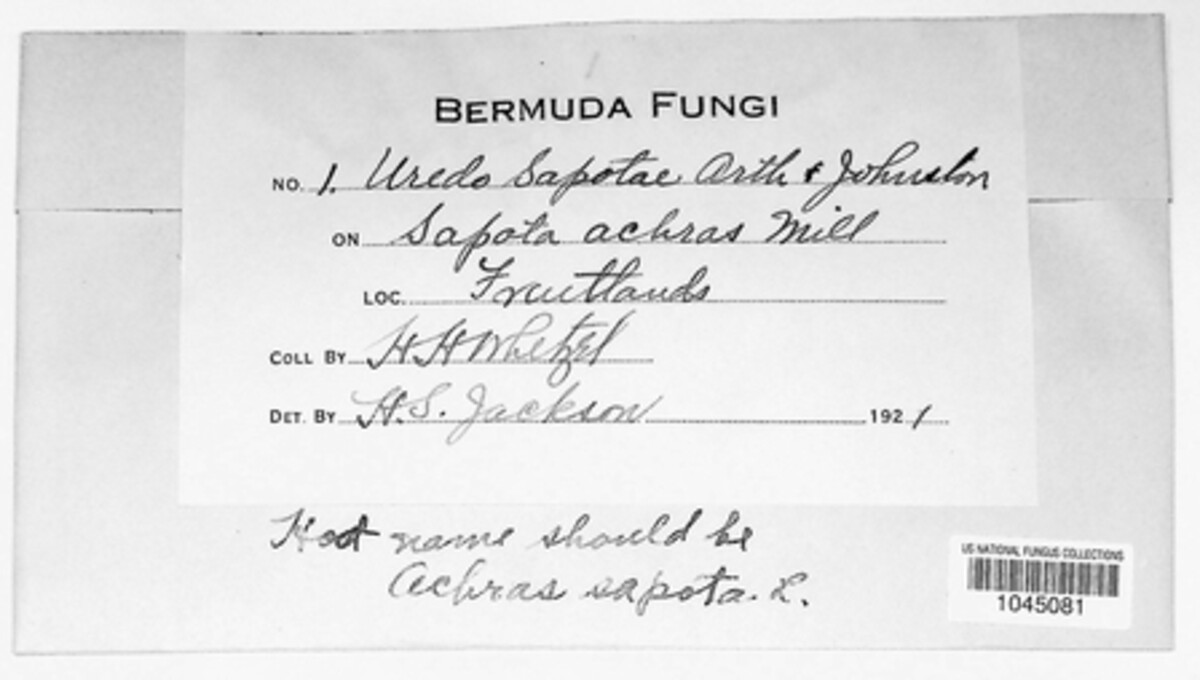 BERMUDA FUNGI
NO. 1. Uredo Sapotae Arth & Johnston
ON Sapota achras Mill
LOC. Fruitlands
COLL BY H H Whetzel
DET. BY H.S. Jackson 1921
Host name should be
Achras sapota. L.
US NATIONAL FUNGUS COLLECTIONS
1045081